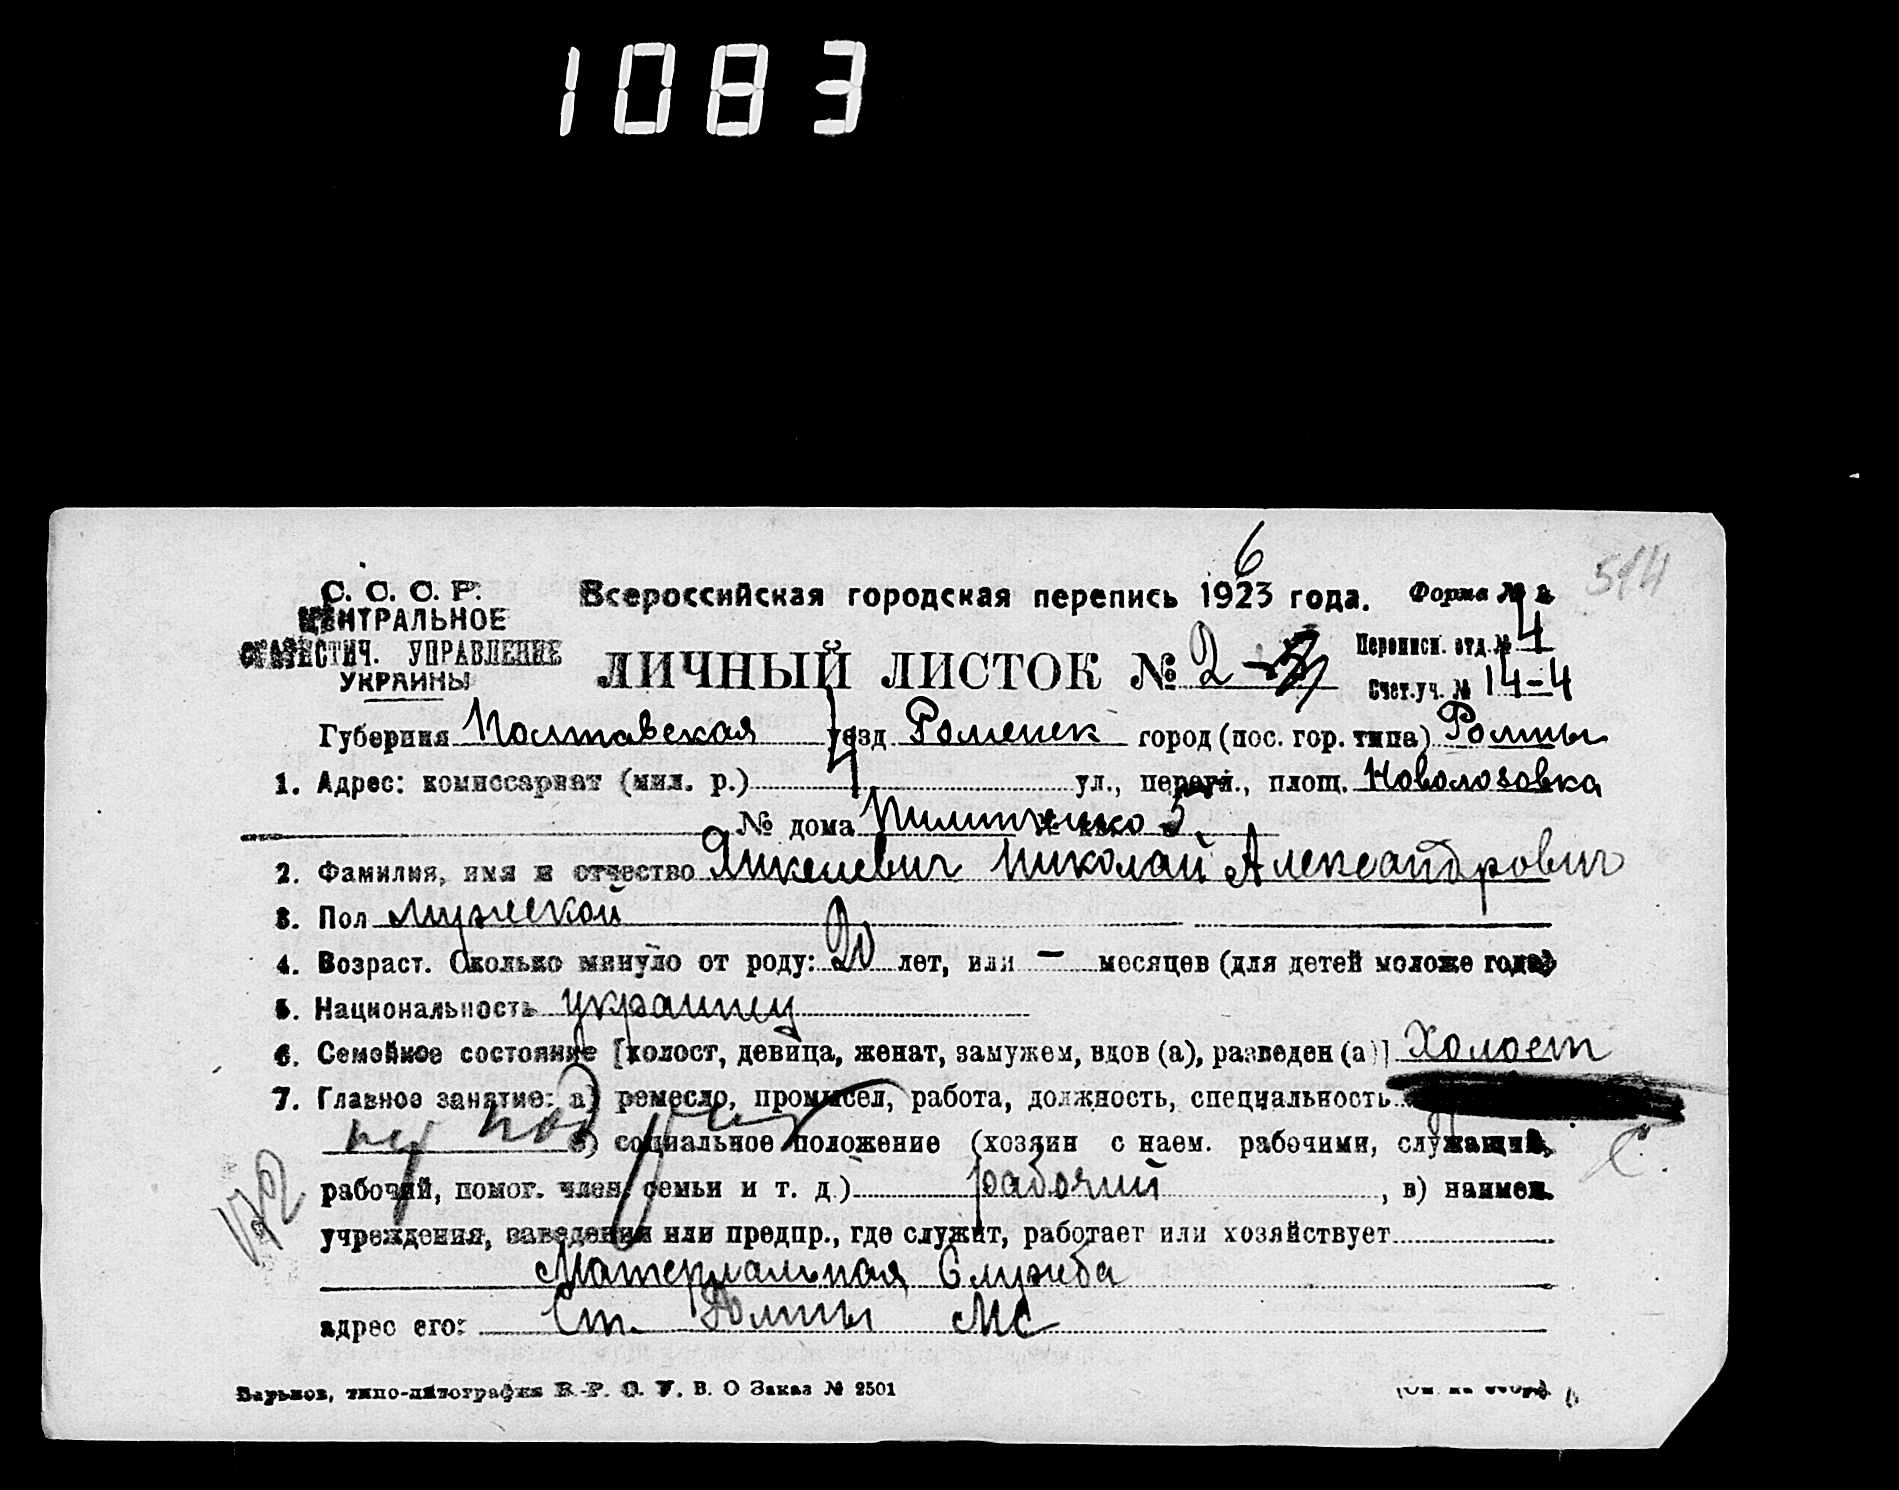 1083
6
514
С. С. С. Р.
ЦЕНТРАЛЬНОЕ
СТАТИСТИЧ. УПРАВЛЕНИЕ
УКРАИНЫ
Всероссийская городская перепись 1923 года.
Форма № 2
ЛИЧНЫЙ ЛИСТОК № 2
Переписн. отд. № 4
Счет. уч. № 14-4
Губерния Полтавская уезд Роменск город (пос. гор. типа) Ромны
1. Адрес: комиссариат (мил. р.) 4 ул., переул., площ. Новолозовка
№ дома 5
2. Фамилия, имя и отчество Янкелевич Николай Александрович
3. Пол мужской
4. Возраст. Сколько минуло от роду: 20 лет, или — месяцев (для детей моложе года)
5. Национальность украинец
6. Семейное состояние [холост, девица, женат, замужем, вдов (а), разведен (а)] Холост
7. Главное занятие: а) ремесло, промысел, работа, должность, специальность
б) социальное положение (хозяин с наем. рабочими, служащий,
рабочий, помог. член семьи и т. д.) рабочий, в) наимен.
учреждения, заведения или предпр., где служит, работает или хозяйствует
Материальная Служба
адрес его: Ст. Ромны МС
Харьков, типо-литография В. О Заказ № 2501